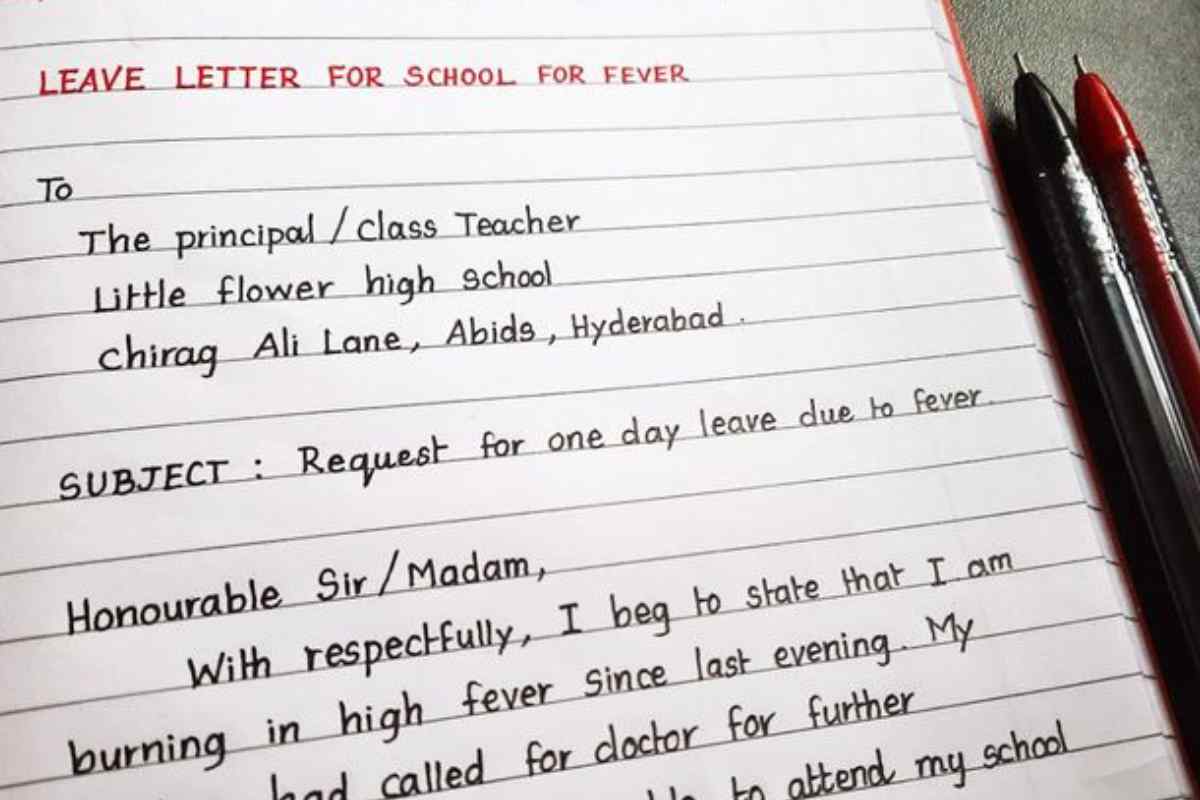 LEAVE LETTER FOR SCHOOL FOR FEVER
To
The principal / class Teacher
Little flower high school
chirag Ali Lane, Abids, Hyderabad.
SUBJECT : Request for one day leave due to fever.
Honourable Sir/Madam,
With respectfully, I beg to state that I am
burning in high fever since last evening. My
had called for doctor for further
to attend my school